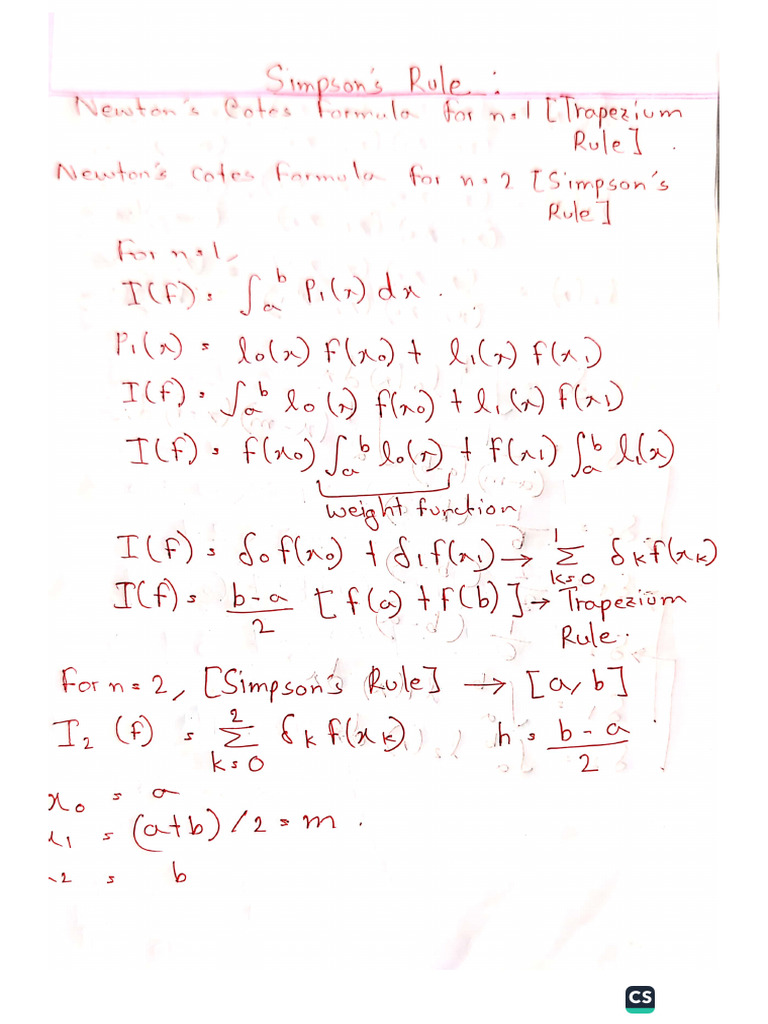 Simpson's Rule :
Newton's Cotes Formula for n=1 [Trapezium
Rule] .
Newton's Cotes Formula for n=2 [Simpson's
Rule]
For n=1,
I(f) = ∫_a^b P₁(x) dx .
P₁(x) = l₀(x) f(x₀) + l₁(x) f(x₁)
I(f) = ∫_a^b l₀(x) f(x₀) + l₁(x) f(x₁)
I(f) = f(x₀) ∫_a^b l₀(x) + f(x₁) ∫_a^b l₁(x)
weight function
I(f) = δ₀f(x₀) + δ₁f(x₁) → Σ_{k=0}^{1} δ_k f(x_k)
I(f) = (b-a)/2 [f(a) + f(b)] → Trapezium
Rule.
For n=2, [Simpson's Rule] → [a,b]
I₂(f) = Σ_{k=0}^{2} δ_k f(x_k) h = (b-a)/2 .
x₀ = a
x₁ = (a+b)/2 = m .
₂ = b
CS